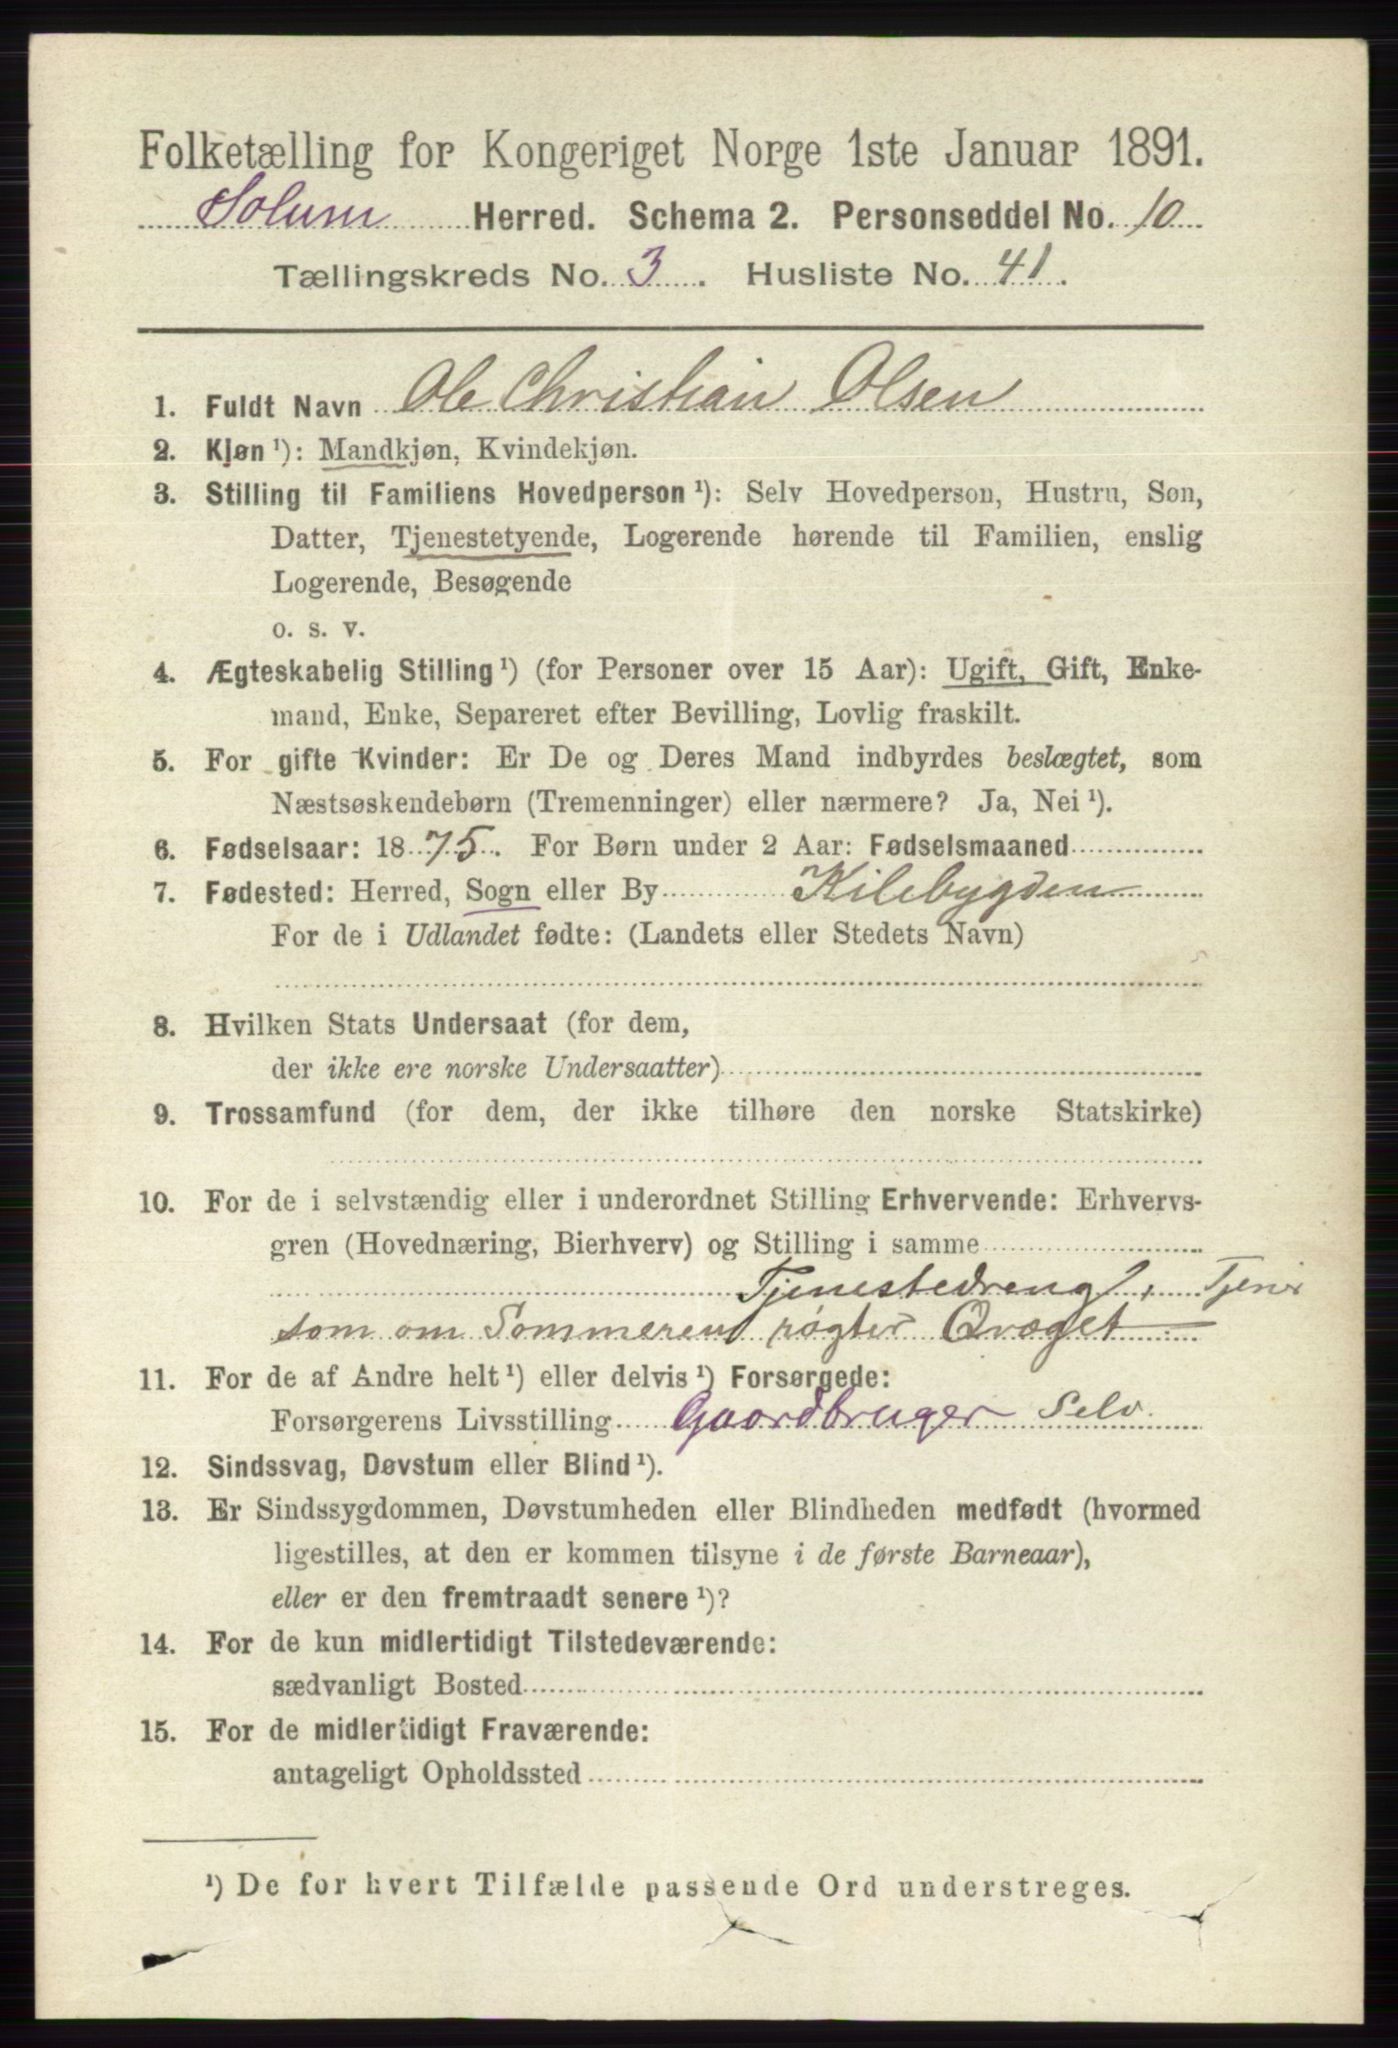 Folketælling for Kongeriget Norge 1ste Januar 1891.
Solum Herred. Schema 2. Personseddel No. 10
Tællingskreds No. 3. Husliste No. 41.
1. Fuldt Navn Ole Christian Olsen
2. Kjøn ¹): Mandkjøn, Kvindekjøn.
3. Stilling til Familiens Hovedperson ¹): Selv Hovedperson, Hustru, Søn,
Datter, Tjenestetyende, Logerende hørende til Familien, enslig
Logerende, Besøgende
o. s. v.
4. Ægteskabelig Stilling ¹) (for Personer over 15 Aar): Ugift, Gift, Enke-
mand, Enke, Separeret efter Bevilling, Lovlig fraskilt.
5. For gifte Kvinder: Er De og Deres Mand indbyrdes beslægtet, som
Næstsøskendebørn (Tremenninger) eller nærmere? Ja, Nei ¹).
6. Fødselsaar: 1875. For Børn under 2 Aar: Fødselsmaaned
7. Fødested: Herred, Sogn eller By Kilebygden
For de i Udlandet fødte: (Landets eller Stedets Navn)
8. Hvilken Stats Undersaat (for dem,
der ikke ere norske Undersaatter)
9. Trossamfund (for dem, der ikke tilhøre den norske Statskirke)
10. For de i selvstændig eller i underordnet Stilling Erhvervende: Erhvervs-
gren (Hovednæring, Bierhverv) og Stilling i samme
Tjenestedreng, Tjener
som om Sommeren røgter Qvæget
11. For de af Andre helt ¹) eller delvis ¹) Forsørgede:
Forsørgerens Livsstilling Gaardbruger Selv.
12. Sindssvag, Døvstum eller Blind ¹).
13. Er Sindssygdommen, Døvstumheden eller Blindheden medfødt (hvormed
ligestilles, at den er kommen tilsyne i de første Barneaar),
eller er den fremtraadt senere ¹)?
14. For de kun midlertidigt Tilstedeværende:
sædvanligt Bosted
15. For de midlertidigt Fraværende:
antageligt Opholdssted
¹) De for hvert Tilfælde passende Ord understreges.